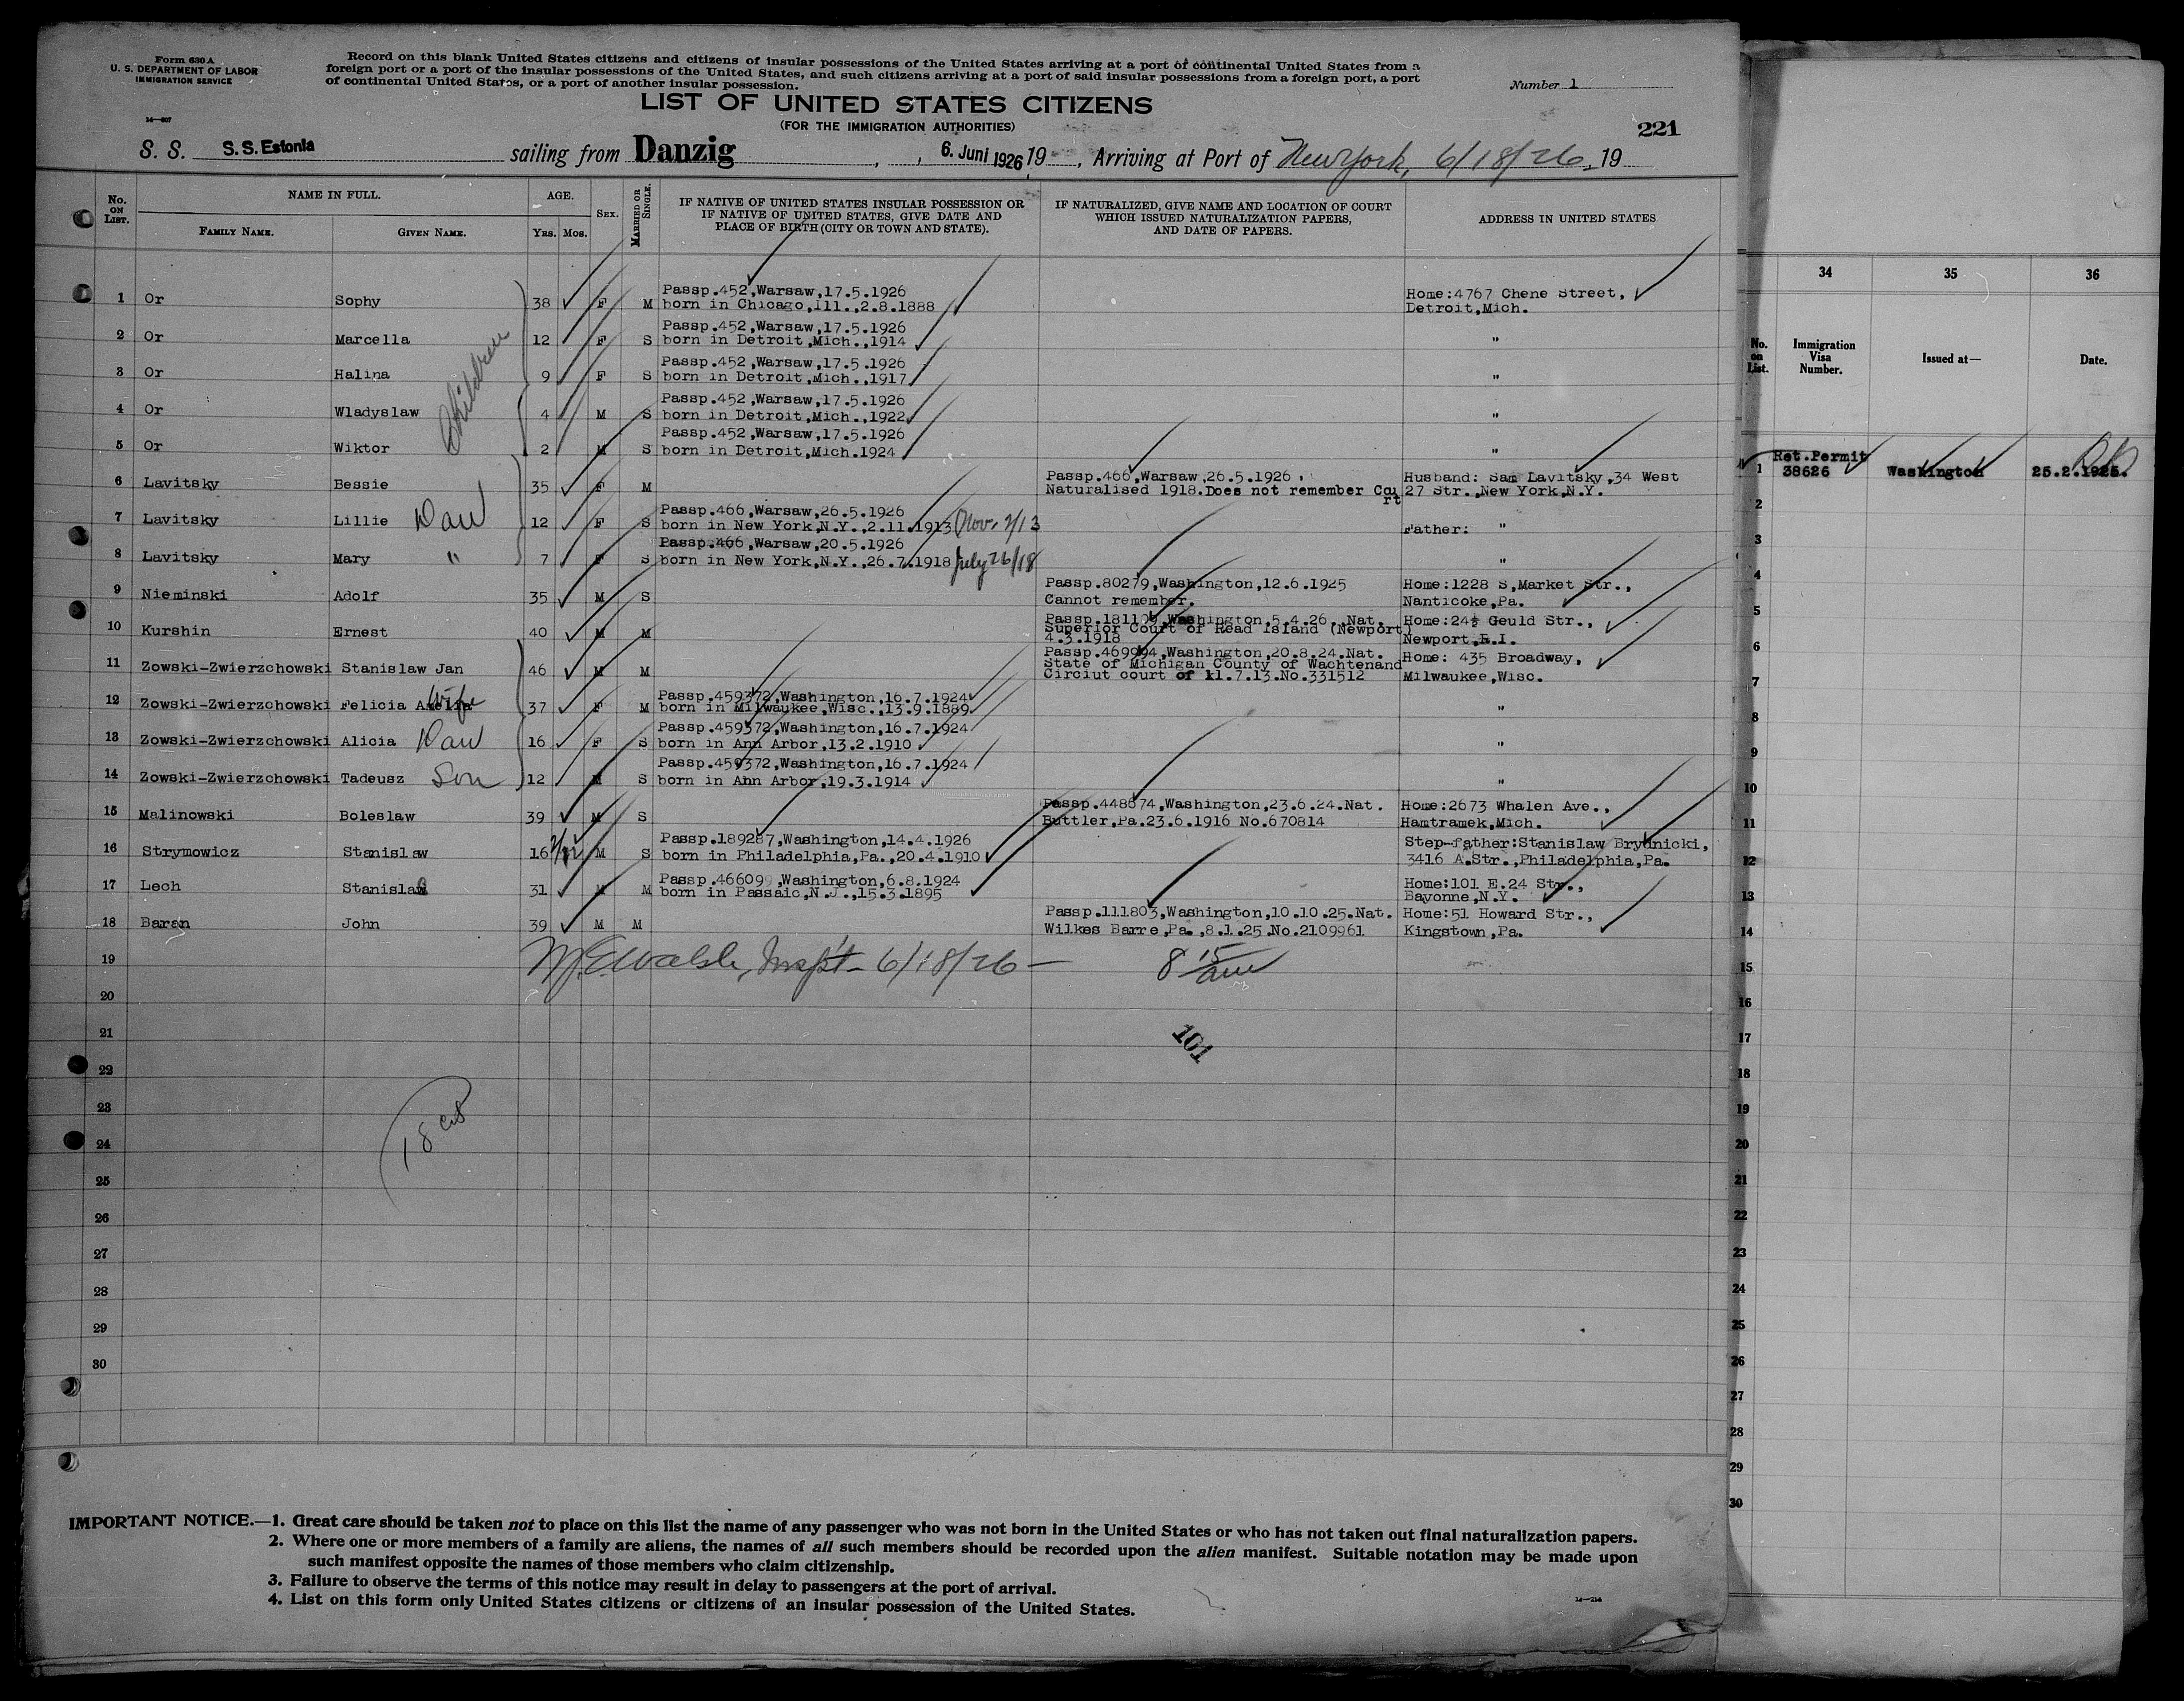 Form 630 A
U. S. DEPARTMENT OF LABOR
IMMIGRATION SERVICE
14—607
Record on this blank United States citizens and citizens of insular possessions of the United States arriving at a port of continental United States from a
foreign port or a port of the insular possessions of the United States, and such citizens arriving at a port of said insular possessions from a foreign port, a port
of continental United States, or a port of another insular possession.
Number 1
LIST OF UNITED STATES CITIZENS
(FOR THE IMMIGRATION AUTHORITIES)
221
S. S. S. S. Estonia sailing from Danzig, 6. Juni 1926 19 , Arriving at Port of New York, 6/18/26, 19
No. ON LIST.
NAME IN FULL.
FAMILY NAME.
GIVEN NAME.
AGE.
YRS. MOS.
SEX.
MARRIED OR SINGLE.
IF NATIVE OF UNITED STATES INSULAR POSSESSION OR
IF NATIVE OF UNITED STATES, GIVE DATE AND
PLACE OF BIRTH (CITY OR TOWN AND STATE).
IF NATURALIZED, GIVE NAME AND LOCATION OF COURT
WHICH ISSUED NATURALIZATION PAPERS,
AND DATE OF PAPERS.
ADDRESS IN UNITED STATES
Children
Passp.452,Warsaw,17.5.1926
1 Or Sophy 38 F M born in Chicago,Ill.,2.8.1888 Home:4767 Chene Street,
Detroit,Mich.
Passp.452,Warsaw,17.5.1926
2 Or Marcella 12 F S born in Detroit,Mich.,1914 "
Passp.452,Warsaw,17.5.1926
3 Or Halina 9 F S born in Detroit,Mich.,1917 "
Passp.452,Warsaw,17.5.1926
4 Or Wladyslaw 4 M S born in Detroit,Mich.,1922 "
Passp.452,Warsaw,17.5.1926
5 Or Wiktor 2 M S born in Detroit,Mich.1924 "
Passp.466,Warsaw,26.5.1926, Husband: Sam Lavitsky,34 West
6 Lavitsky Bessie 35 F M Naturalised 1918.Does not remember Cou rt 27 Str.,New York,N.Y.
Passp.466,Warsaw,26.5.1926
7 Lavitsky Lillie Dau 12 F S born in New York,N.Y.,2.11.1913 Nov. 2/13 Father: "
Passp.466,Warsaw,20.5.1926
8 Lavitsky Mary " 7 F S born in New York,N.Y.,26.7.1918 July 26/18 "
Passp.80279,Washington,12.6.1925 Home:1228 S,Market Str.,
9 Nieminski Adolf 35 M S Cannot remember. Nanticoke,Pa.
Passp.181109,Washington,5.4.26. Nat. Home:24½ Geuld Str.,
10 Kurshin Ernest 40 M M Superior Court of Read Island (Newport) Newport,R.I.
4.3.1918
Passp.469994,Washington,20.8.24.Nat.
11 Zowski-Zwierzchowski Stanislaw Jan 46 M M State of Michigan County of Wachtenand Home: 435 Broadway,
Circiut court of 11.7.13.No.331512 Milwaukee,Wisc.
Passp.459372,Washington,16.7.1924
12 Zowski-Zwierzchowski Felicia Adelia Wife 37 F M born in Milwaukee,Wisc.,13.9.1889 "
Passp.459372,Washington,16.7.1924
13 Zowski-Zwierzchowski Alicia Dau 16 F S born in Ann Arbor,13.2.1910 "
Passp.459372,Washington,16.7.1924
14 Zowski-Zwierzchowski Tadeusz Son 12 M S born in Ann Arbor,19.3.1914 "
Passp.448674,Washington,23.6.24.Nat. Home:2673 Whalen Ave.,
15 Malinowski Boleslaw 39 M S Buttler,Pa.23.6.1916 No.670814 Hamtramek,Mich.
Passp.189287,Washington,14.4.1926 Step-father:Stanislaw Brydnicki,
16 Strymowicz Stanislaw 16 2/12 M S born in Philadelphia,Pa.,20.4.1910 3416 A.Str.,Philadelphia,Pa.
Passp.466099,Washington,6.8.1924 Home:101 E.24 Str.,
17 Lech Stanislaw 31 M M born in Passaic,N.J.,15.3.1895 Bayonne,N.Y.
Passp.111803,Washington,10.10.25.Nat. Home:51 Howard Str.,
18 Baran John 39 M M Wilkes Barre,Pa.,8.1.25.No.2109961 Kingstown,Pa.
19 Walsh, Insp't- 6/18/26 — 8 15/am
20
21
101
22
23
18
24
25
26
27
28
29
30
IMPORTANT NOTICE.—1. Great care should be taken not to place on this list the name of any passenger who was not born in the United States or who has not taken out final naturalization papers.
2. Where one or more members of a family are aliens, the names of all such members should be recorded upon the alien manifest. Suitable notation may be made upon
such manifest opposite the names of those members who claim citizenship.
3. Failure to observe the terms of this notice may result in delay to passengers at the port of arrival.
4. List on this form only United States citizens or citizens of an insular possession of the United States.
14—214
34 35 36
No. on List.
Immigration Visa Number.
Issued at—
Date.
Ret.Permit
1 38626 Washington 25.2.1925.
2
3
4
5
6
7
8
9
10
11
12
13
14
15
16
17
18
19
20
21
22
23
24
25
26
27
28
29
30